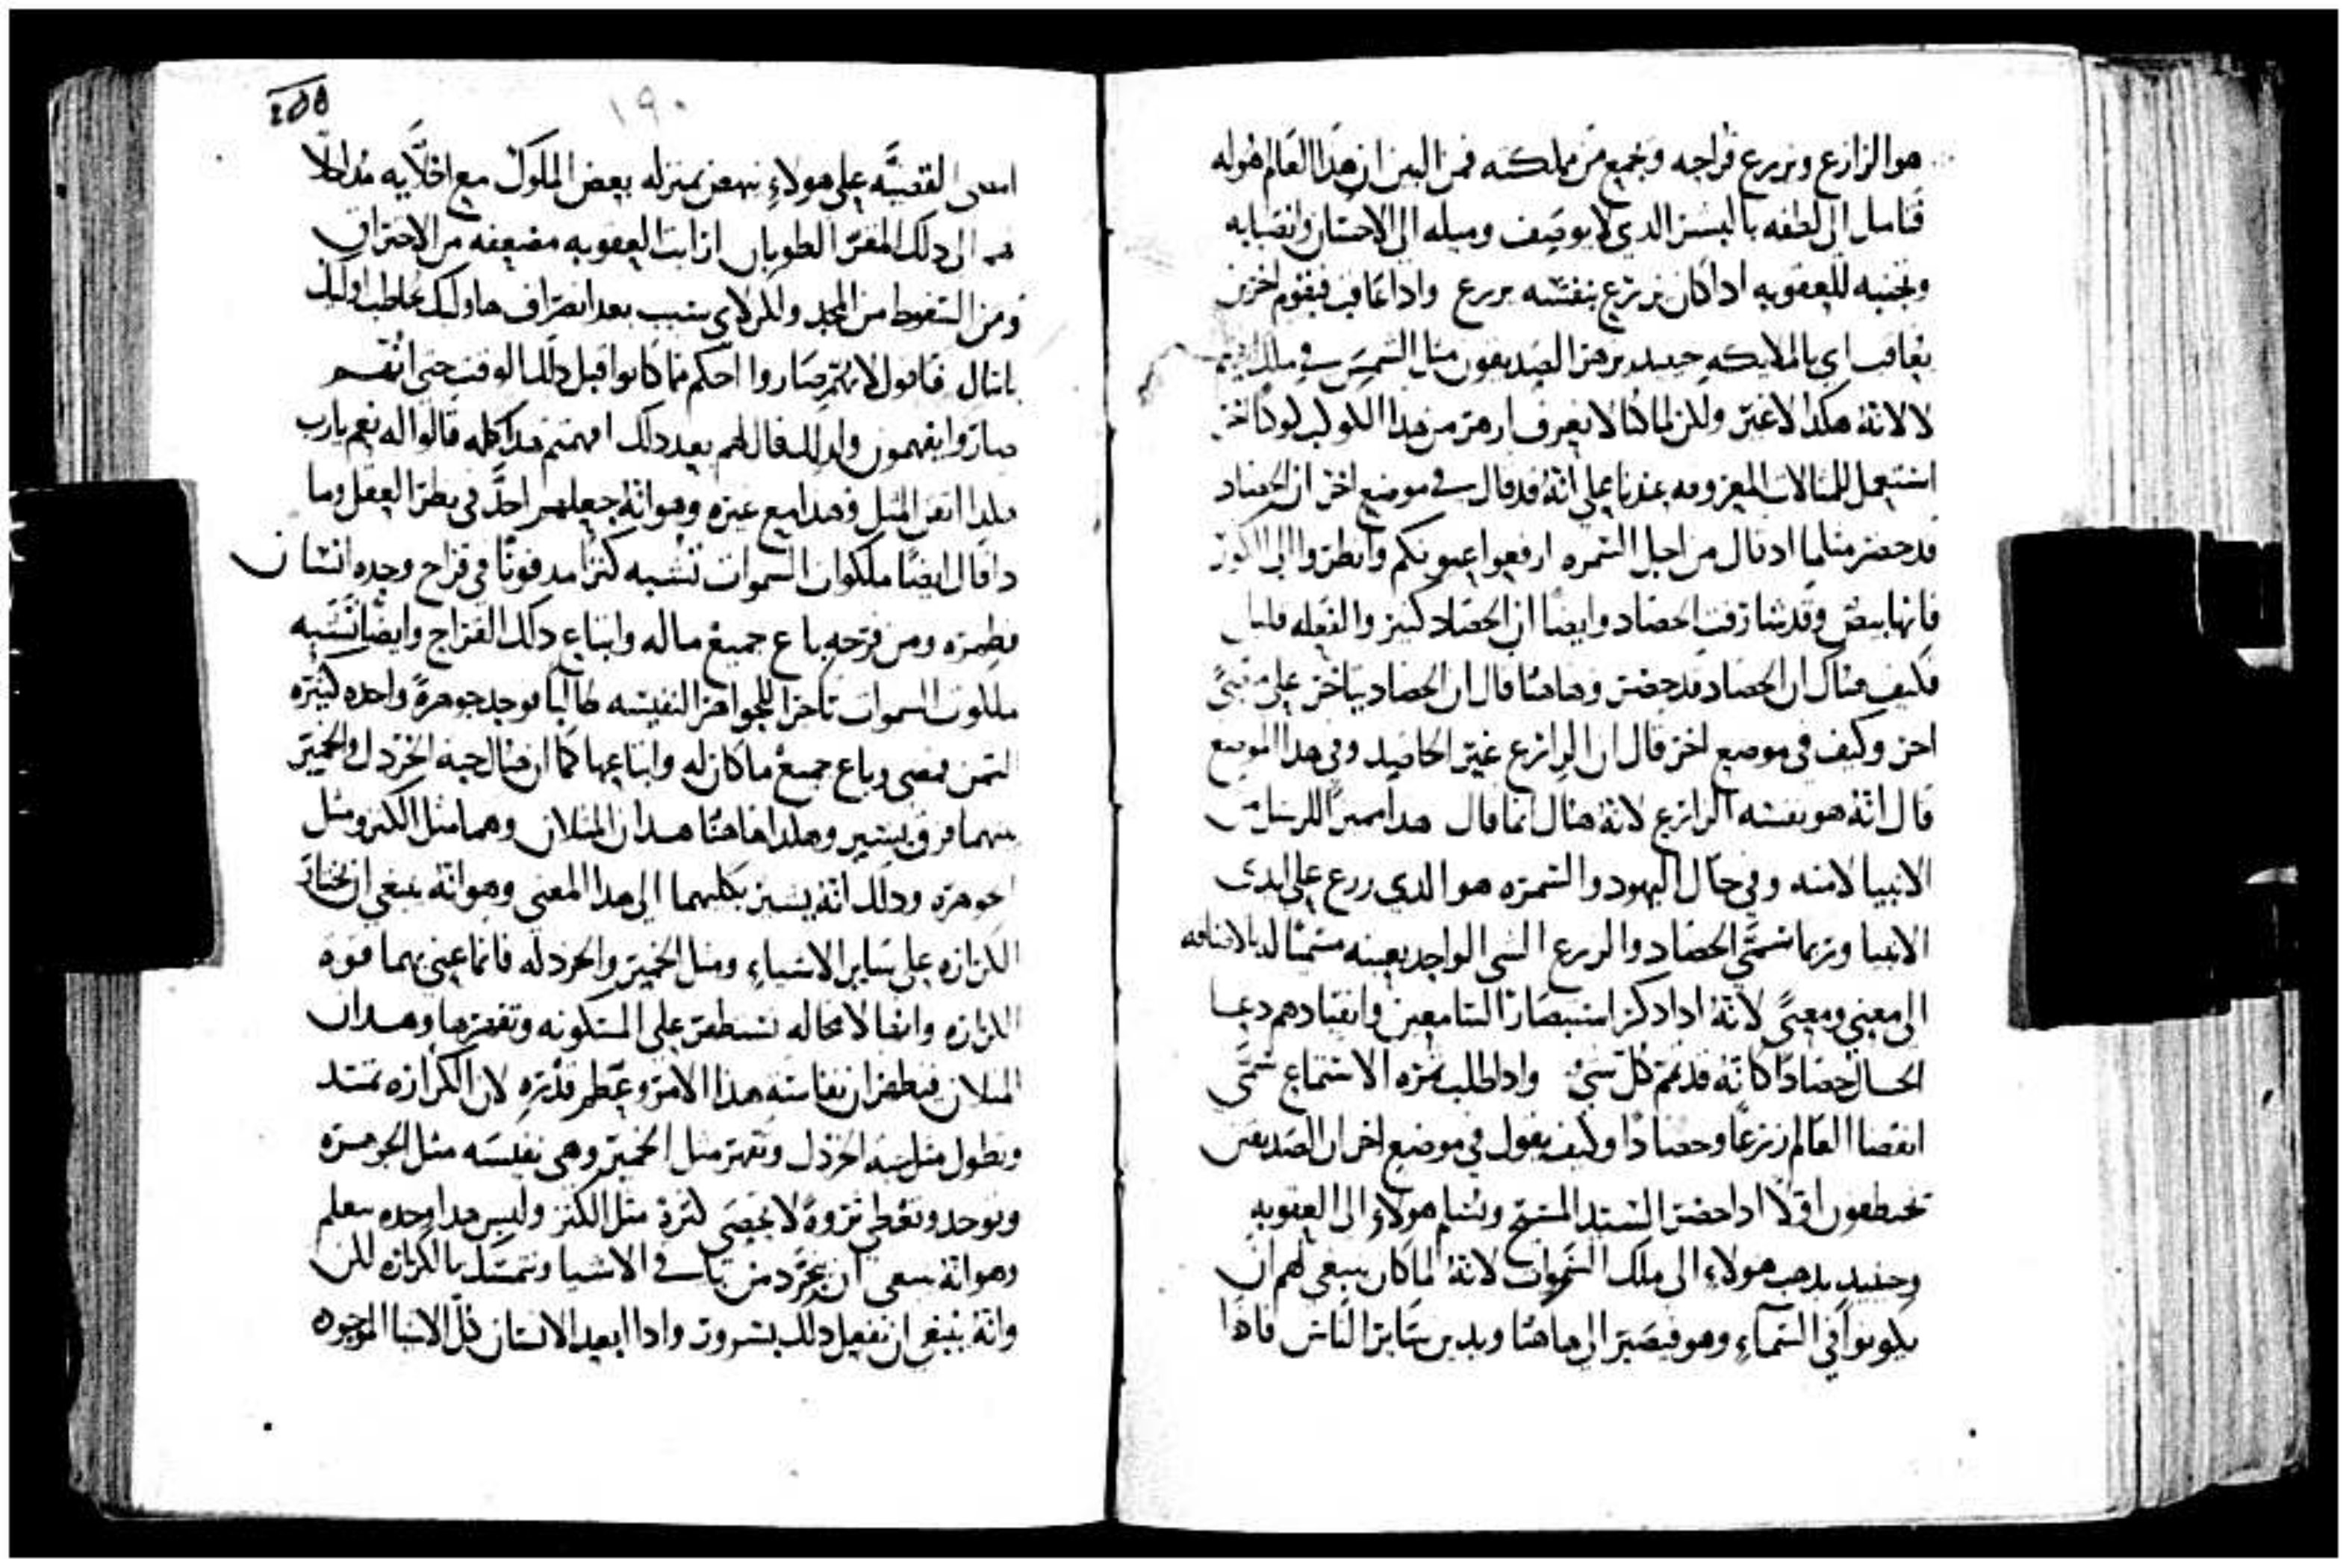 هو الزارع ويزرع قراحه وجميع من مملكته فمن البين ان هذا العالم هو له
فتامل الي لطفه بالبشر الدي لا يوصف وميله الي الاحسان وانصبابه
وتجنبه للعقوبه ادا كان يزرع بنفسه يزرع وادا عاقب فبقوم اخرين
يعاقب اي بالملايكه حينيد يزهر الصديقون مثل الشمس في ملك
لا لانه هكدا لا غير ولكن لما كنا لا نعرف ازهر من هدا الكوكب كوكبا اخر
استعمل المثالات المعروفه عندنا علي انه قد قال في موضع اخر ان الحصاد
قد حضر مثلما اد قال من اجل السمره ارفعوا عيونكم وانظروا الي الكور
فانها بيض وقد شارفت الحصاد وايضا ان الحصاد كثير والفعله قليل
فكيف هناك ان الحصاد قد حضر وهاهنا قال ان الحصاد يتاخر علي معنيً
اخر وكيف في موضع اخر قال ان الزارع غير الحاصد وفي هدا الموضع
قال انه هو بنفسه الزارع لانه هناك انما قال هدا مميزا للرسل من
الانبيا لا منه وفي حال اليهود والسمره هو الدي زرع علي ايدي
الانبيا وربما سمي الحصاد والزرع الشي الواحد بعينه مسميا له بالاضافه
الي معني ومعنيً لانه ادا دكر استبصار السامعين وانقيادهم دعا
الحال حصادا كانه قد تم كل شيء وادا طلب ثمره الاستماع سمي
انقضا العالم زرعا وحصادا وكيف يقول في موضع اخر ان الصديقين
يختطفون اولا ادا حضر السيد المسيح ويسلم هولاء الي العقوبه
وحينيد يدهب هولاء الي ملك السموات لانه لما كان ينبغي لهم ان
يكونوا في السماء وهو فيصير الي هاهنا ويدين ساير الناس فادا
١٩٠
امضي القضيه علي هولاء نهض بمنزله بعض الملوك مع اخلايه مدخلا
الي دلك المقر الطوباني ارايت العقوبه مضعفه من الاحتراق
ومن السقوط من المجد ولكن لاي سبب بعد انصراف هاوليك خاطب اوليك
بامثال فاقول لانهم صاروا احكم مما كانوا قبل دلك الوقت حتي انهم
صاروا يفهمون ولدلك قال لهم بعد دلك افهمتم هدا كله قالوا له نعم يارب
هكدا اتقن المثل وهدا مع غيره وهو انه جعلهم احد في نظر العقل وما
دا قال ايضا ملكوات السموات تشبه كنزا مدفونا في قراح وجده انسان
فطمره ومن فرحه باع جميع ماله وابتاع دلك القراح وايضا تشبه
ملكوت السموات تاجرا للجواهر النفيسه طالبا فوجد جوهرةً واحده كثيره
الثمن فمضي وباع جميع ما كان له وابتاعها كما ان مثال حبه الخردل والخمير
بينهما فرق يسير وهكدا هاهنا هدان المثلان وهما مثل الكنز ومثل
الجوهره ودلك انه يشير بكليهما الي هدا المعني وهو انه ينبغي ان نختار
الكرازه علي ساير الاشياء ومثل الخمير والخردله فانما عني بهما قوه
الكرازه وانها لا محاله تستظهر علي المسكونه وتقهرها وهدان
المثلان فيظهران نفاسه هدا الامر وعظم قدره لان الكرازه تمتد
وتطول مثل حبه الخردل وتقهر مثل الخمير وهي نفيسه مثل الجوهره
وتوجد وتعطي ثروةً لا تحصي كثرة مثل الكنز وليس هدا وحده نعلم
وهو انه ينبغي ان نتجرد من باقي الاشيا ونتمسك بالكرازه لكن
وانه ينبغي ان نفعل دلك بسرور وادا ابعد الانسان كل الاشيا الموجوده